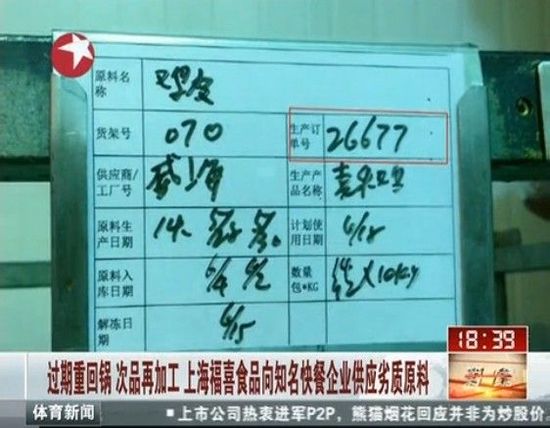 原料名
称
鸡皮
货架号
070
生产订
单号
26677
供应商/
工厂号
威海
生产产
品名称
麦乐鸡
原料生
产日期
14.
计划使
用日期
6/18
原料入
库日期
数量
包*KG
X10Kg
解冻日
期
6/15
18:39
过期重回锅 次品再加工 上海福喜食品向知名快餐企业供应劣质原料
体育新闻
上市公司热衷进军P2P，熊猫烟花回应并非为炒股价